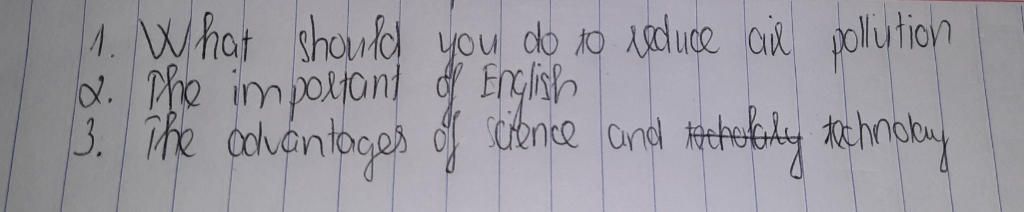 1. What should you do to reduce air pollution
2. The important of English
3. The advantages of science and technolay